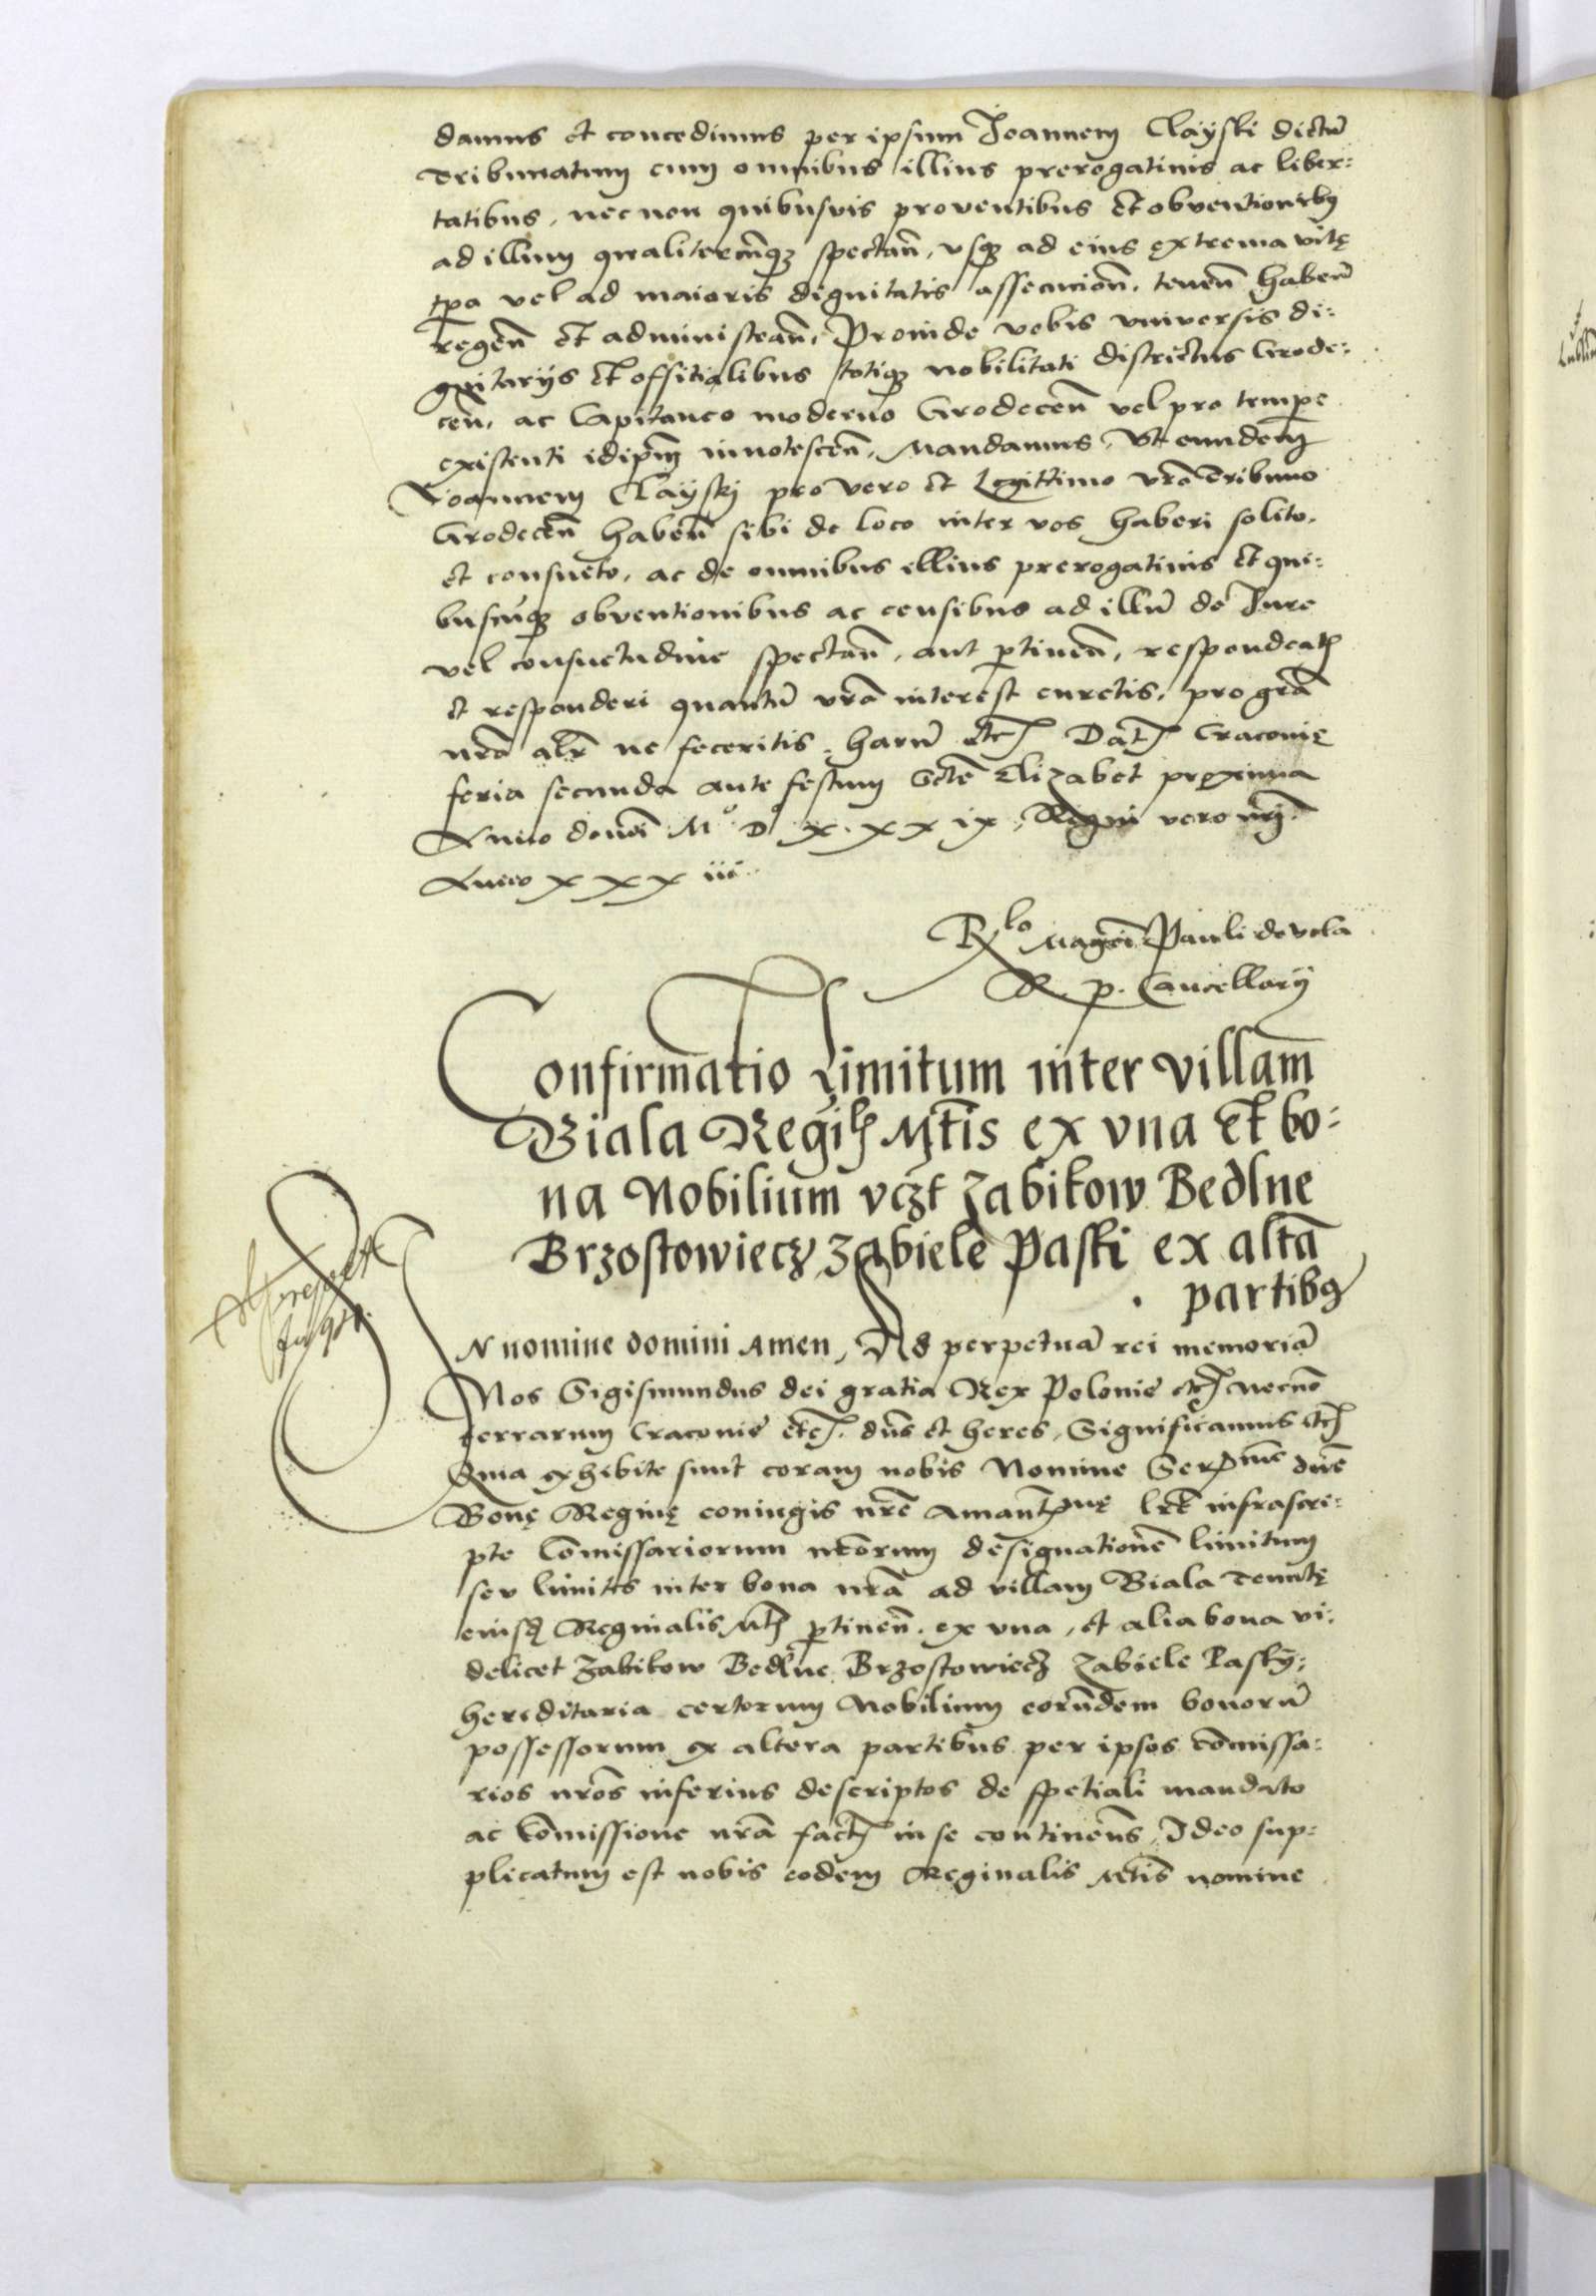 damus et concedimus per ipsum Joannem Clayski dictũ
Tribunatum cum omnibus illius prerogativis ac liber:
tatibus, nec non quibusvis proventibus et obventionibꝫ
ad illum qualitercũqꝫ spectañ, vsqꝫ ad eius extrema vitę
tp̃a vel ad maioris dignitatis assecucioñ, teneñ habeñ
regeñ et administrañ, Proinde vobis vniversis di:
gnitarijs et offitialibus totiqꝫ nobilitati districtus Grode:
ceñ, ac Capitaneo moderno Grodeceñ vel pro tempe
existenti idip̃m innotesceñ, Mandamus, Vt eundem
Joannem Clayskj pro vero et Legittimo vrõ Tribuno
Grodeceñ habeñ sibi de loco inter vos haberi solito,
et consueto, ac de omnibus illius prerogativis et qui:
buscũqꝫ obventionibus ac censibus ad illũ de Jure
vel consuetudine spectañ, aut p̱tineñ, respondeatꝭ
et responderi quantũ vrã interest curetis, pro grã
nrã alr̃ ne feceritis, harũ etcꝭ Datꝭ Cracovię
feria secunda ante festum Sctẽ Elizabet proxima
Anno domĩ Mº Dº x. x x ix, Regni vero nrĩ
Anno x x x iii.
Rlo Magcĩ Pauli de vola
R. p. Cancellarij
Confirmatio Limitum inter villam
Biala Regiꝭ Mt̃is ex vna et bo:
na Nobilium vcꝫt Zabikow Bedlne
Brzostowiecz, Zabiele Paski ex alt̃a
partibꝫ
IN nomine domini Amen, Ad perpetuã rei memoriã
Nos Sigismundus dei gratia Rex Polonie etcꝭ necnõ
terrarum Cracovie etcꝭ. dñs et heres, Significamus etcꝭ
Quia exhibite sunt coram nobis Nomine Serme dñe
Bonę Reginę coniugis nrẽ Amantmę lrẽ infrascri:
pte Com̃issariorum nrõrum designationẽ limitum
seu limites inter bona nrã ad villam Biala Tenutę
eiusd̃ Reginalis Mtꝭ p̱tineñ. ex vna, et alia bona vi:
delicet Zabikow Bedlne Brzostowiecz Zabiele Pasky,
hereditaria certorum Nobilium eorũdem bonorũ
possessorum ex altera partibus per ipsos com̃issa:
rios nrõs inferius descriptos de spetiali mandato
ac Com̃issione nrã factꝭ in se continens, Ideo sup:
plicatum est nobis eodem Reginalis Mtis nomine